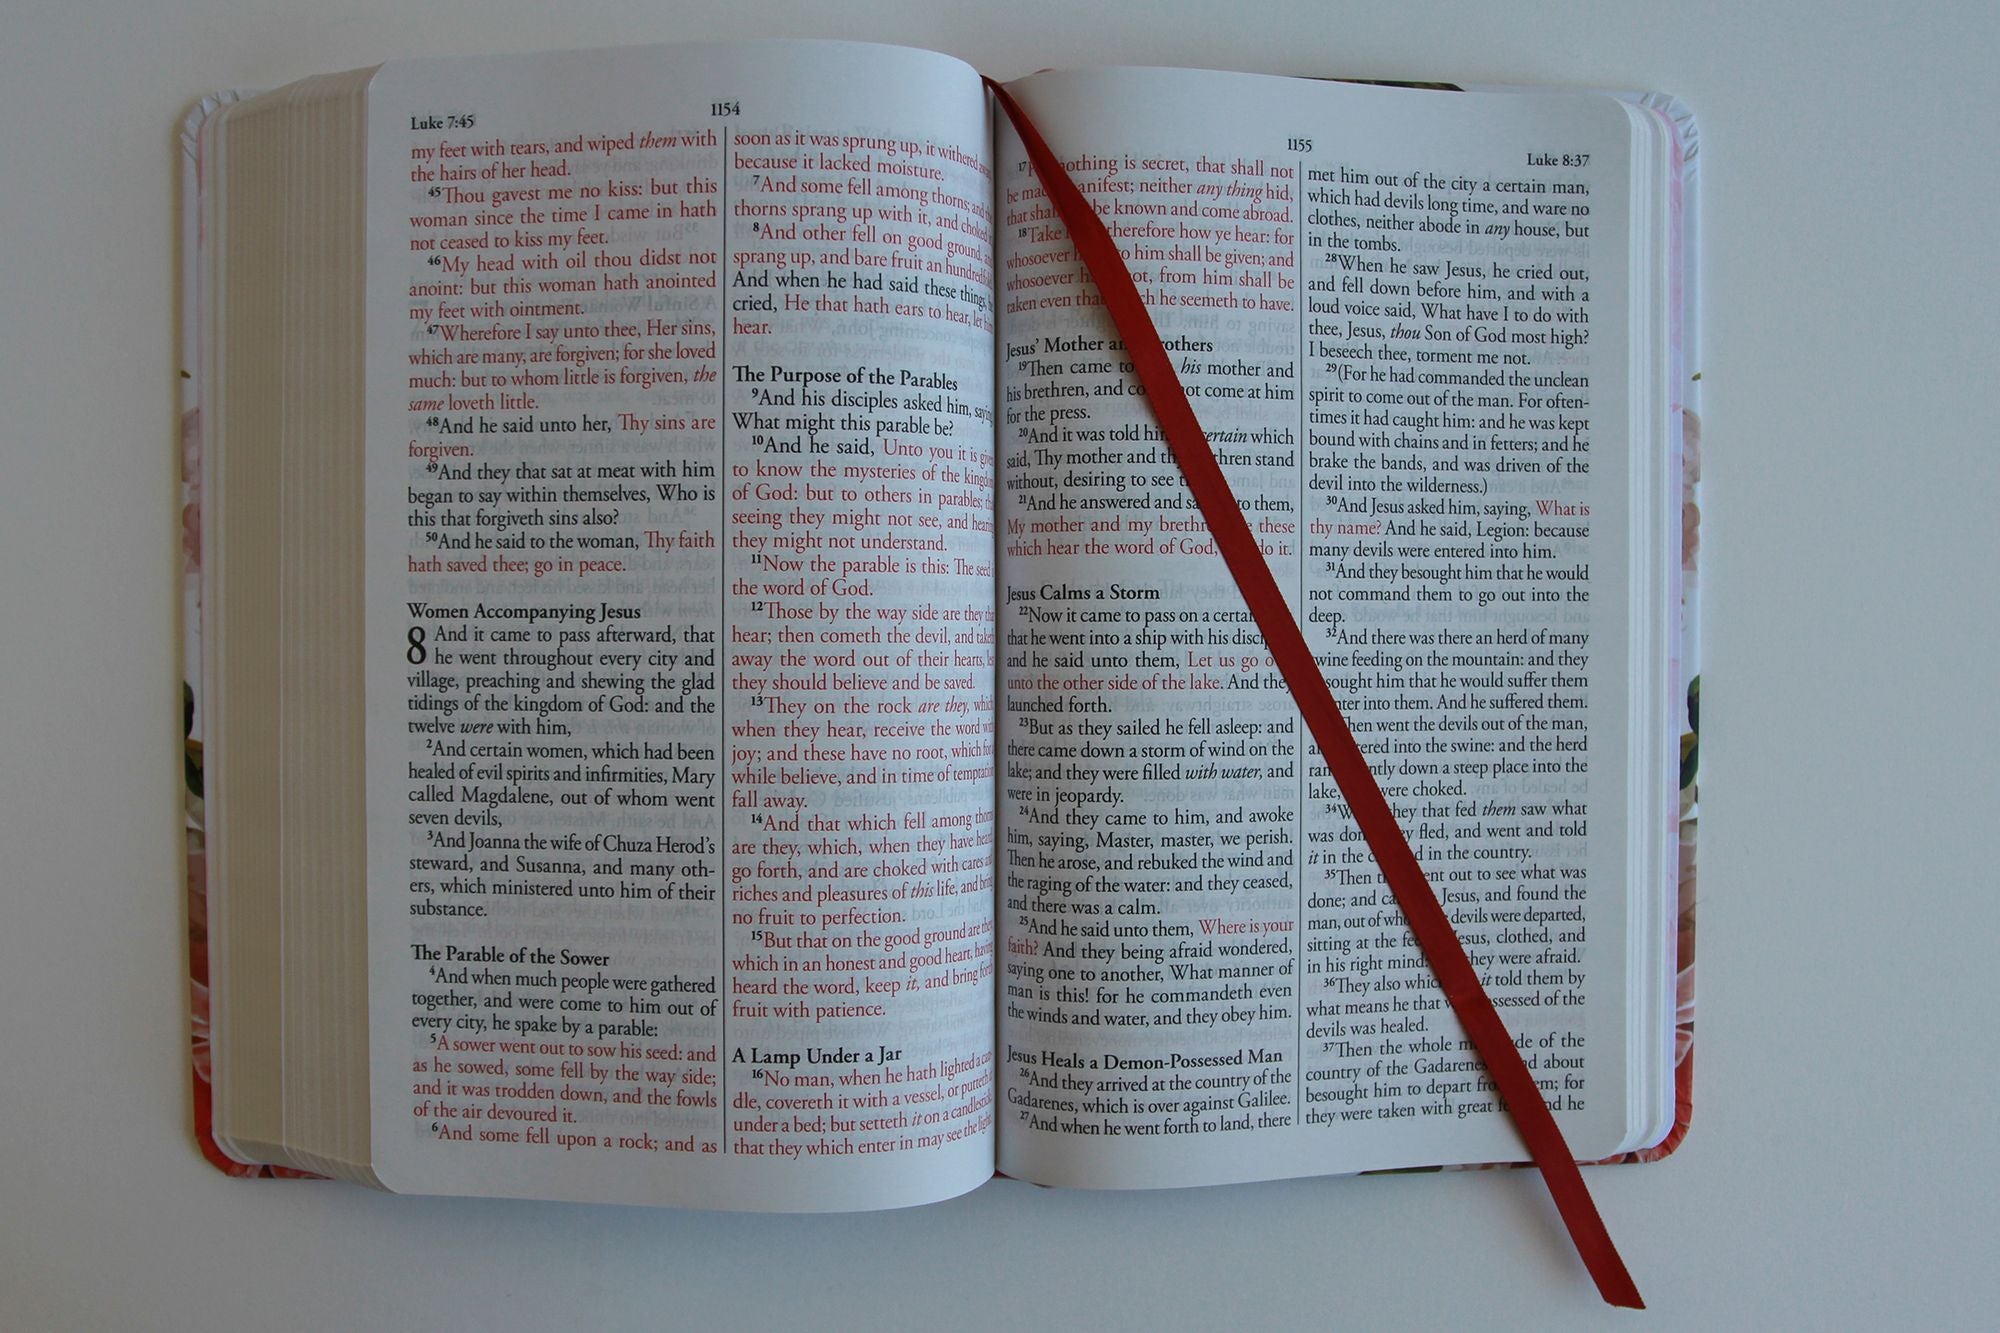 Luke 7:45
1154
my feet with tears, and wiped them with
the hairs of her head.
45Thou gavest me no kiss: but this
woman since the time I came in hath
not ceased to kiss my feet.
46My head with oil thou didst not
anoint: but this woman hath anointed
my feet with ointment.
47Wherefore I say unto thee, Her sins,
which are many, are forgiven; for she loved
much: but to whom little is forgiven, the
same loveth little.
48And he said unto her, Thy sins are
forgiven.
49And they that sat at meat with him
began to say within themselves, Who is
this that forgiveth sins also?
50And he said to the woman, Thy faith
hath saved thee; go in peace.
Women Accompanying Jesus
8 And it came to pass afterward, that
he went throughout every city and
village, preaching and shewing the glad
tidings of the kingdom of God: and the
twelve were with him,
2And certain women, which had been
healed of evil spirits and infirmities, Mary
called Magdalene, out of whom went
seven devils,
3And Joanna the wife of Chuza Herod's
steward, and Susanna, and many oth-
ers, which ministered unto him of their
substance.
The Parable of the Sower
4And when much people were gathered
together, and were come to him out of
every city, he spake by a parable:
5A sower went out to sow his seed: and
as he sowed, some fell by the way side;
and it was trodden down, and the fowls
of the air devoured it.
6And some fell upon a rock; and as
soon as it was sprung up, it withered away,
because it lacked moisture.
7And some fell among thorns; and
thorns sprang up with it, and choked
8And other fell on good ground,
sprang up, and bare fruit an hundredfold.
And when he had said these things,
cried, He that hath ears to hear, let him
hear.
The Purpose of the Parables
9And his disciples asked him, saying,
What might this parable be?
10And he said, Unto you it is
to know the mysteries of the kingdom
of God: but to others in parables;
seeing they might not see, and hearing
they might not understand.
11Now the parable is this: The seed
the word of God.
12Those by the way side are they
hear; then cometh the devil, and taketh
away the word out of their hearts,
they should believe and be saved.
13They on the rock are they, which
when they hear, receive the word with
joy; and these have no root, which for
while believe, and in time of temptation
fall away.
14And that which fell among thorns
are they, which, when they have heard,
go forth, and are choked with cares and
riches and pleasures of this life, and bring
no fruit to perfection.
15But that on the good ground are they,
which in an honest and good heart, having
heard the word, keep it, and bring forth
fruit with patience.
A Lamp Under a Jar
16No man, when he hath lighted a can-
dle, covereth it with a vessel, or putteth it
under a bed; but setteth it on a candlestick,
that they which enter in may see the light.
1155
Luke 8:37
17 nothing is secret, that shall not
be made manifest; neither any thing hid,
that shall be known and come abroad.
18Take therefore how ye hear: for
whosoever to him shall be given; and
whosoever not, from him shall be
taken even that which he seemeth to have.
Jesus' Mother and Brothers
19Then came to his mother and
his brethren, and could not come at him
for the press.
20And it was told him certain which
said, Thy mother and thy brethren stand
without, desiring to see
21And he answered and said unto them,
My mother and my brethren these
which hear the word of God, do it.
Jesus Calms a Storm
22Now it came to pass on a certain
that he went into a ship with his disciples:
and he said unto them, Let us go over
unto the other side of the lake. And they
launched forth.
23But as they sailed he fell asleep: and
there came down a storm of wind on the
lake; and they were filled with water, and
were in jeopardy.
24And they came to him, and awoke
him, saying, Master, master, we perish.
Then he arose, and rebuked the wind and
the raging of the water: and they ceased,
and there was a calm.
25And he said unto them, Where is your
faith? And they being afraid wondered,
saying one to another, What manner of
man is this! for he commandeth even
the winds and water, and they obey him.
Jesus Heals a Demon-Possessed Man
26And they arrived at the country of the
Gadarenes, which is over against Galilee.
27And when he went forth to land, there
met him out of the city a certain man,
which had devils long time, and ware no
clothes, neither abode in any house, but
in the tombs.
28When he saw Jesus, he cried out,
and fell down before him, and with a
loud voice said, What have I to do with
thee, Jesus, thou Son of God most high?
I beseech thee, torment me not.
29(For he had commanded the unclean
spirit to come out of the man. For often-
times it had caught him: and he was kept
bound with chains and in fetters; and he
brake the bands, and was driven of the
devil into the wilderness.)
30And Jesus asked him, saying, What is
thy name? And he said, Legion: because
many devils were entered into him.
31And they besought him that he would
not command them to go out into the
deep.
32And there was there an herd of many
swine feeding on the mountain: and they
besought him that he would suffer them
enter into them. And he suffered them.
Then went the devils out of the man,
and entered into the swine: and the herd
ran violently down a steep place into the
lake, were choked.
34When they that fed them saw what
was done, they fled, and went and told
it in the and in the country.
35Then they went out to see what was
done; and came Jesus, and found the
man, out of whom devils were departed,
sitting at the feet Jesus, clothed, and
in his right mind: they were afraid.
36They also which it told them by
what means he that was possessed of the
devils was healed.
37Then the whole multitude of the
country of the Gadarenes round about
besought him to depart from them; for
they were taken with great fear: and he